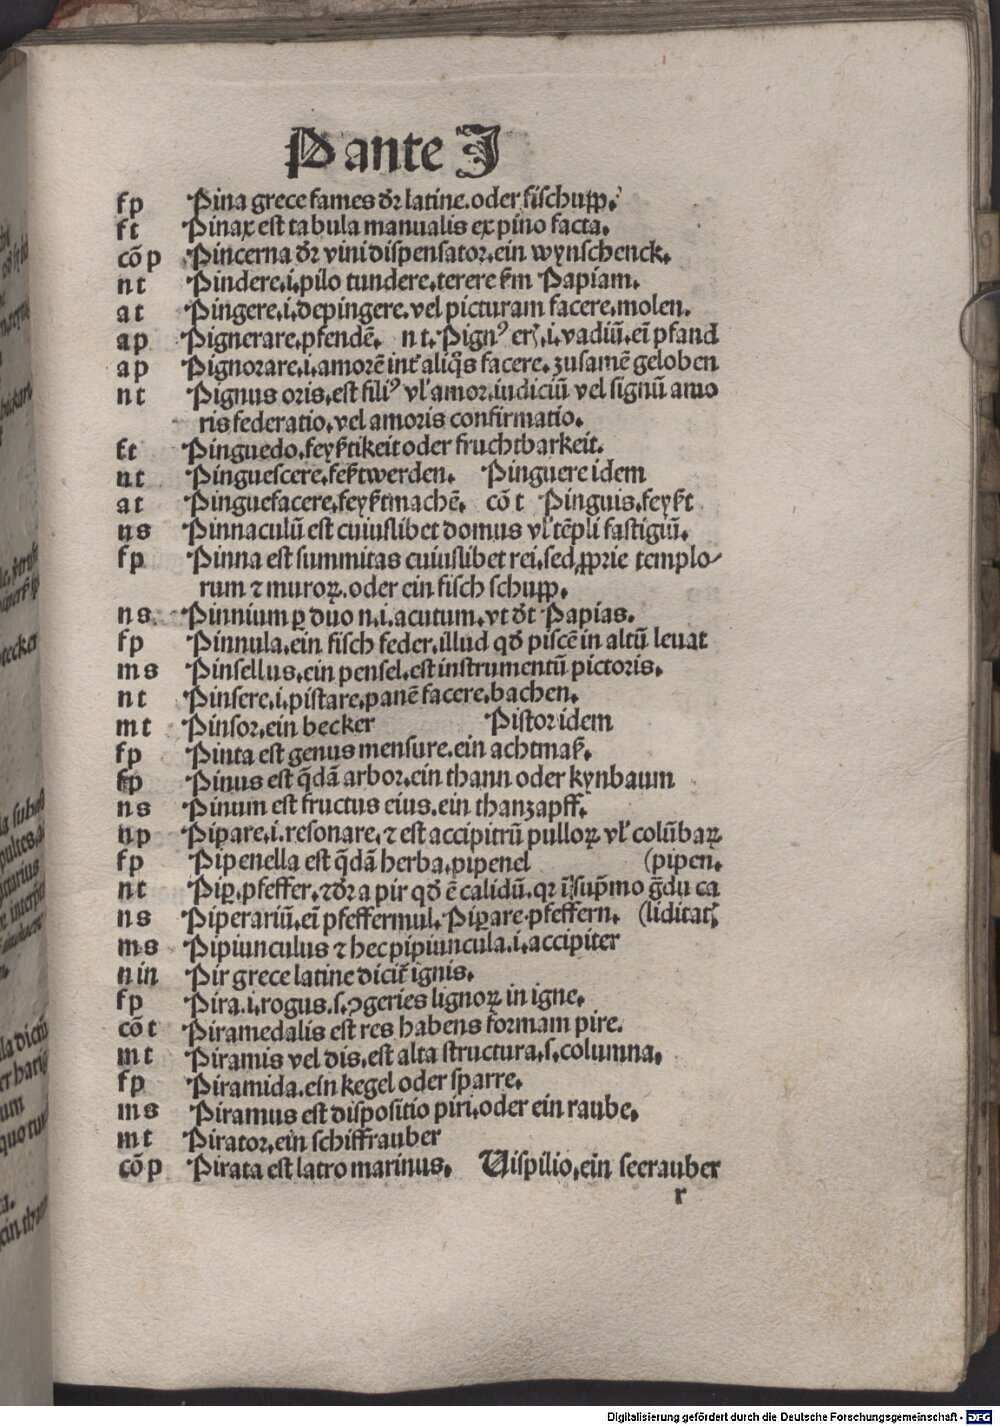 Pante J
fp Pina grece fames dr̄ latine. oder fischupp.
ft Pinax est tabula manualis ex pino facta.
cōp Pincerna dr̄ vini dispensator. ein wynschenck.
nt Pindere. i. pilo tundere. terere fm̄ Papiam.
at Pingere. i. depingere. vel picturam facere. molen.
ap Pignerare. pfendē. nt. Pignꝰ er. i. vadiū. ei pfand
ap Pignorare. i. amorē int̄ aliq̄s facere. zusamē geloben
nt Pignus oris. est filiꝰ vl' amor. iudiciū vel signū amo
ris federatio. vel amoris confirmatio.
ft Pinguedo. feyẞtikeit oder fruchtbarkeit.
nt Pinguescere. feẞtwerden. Pinguere idem
at Pinguefacere. feyẞtmachē. cō t Pinguis. feyẞt
ns Pinnaculū est cuiuslibet domus vl' tēpli fastigiū.
fp Pinna est summitas cuiuslibet rei. sed ꝓprie templo-
rum ⁊ muroꝝ. oder ein fisch schupp.
ns Pinnium ꝑ duo n. i. acutum. vt dt̄ Papias.
fp Pinnula. ein fisch feder. illud qd̄ piscē in altū leuat
ms Pinsellus. ein pensel. est instrumentū pictoris.
nt Pinsere. i. pistare. panē facere. bachen.
mt Pinsor. ein becker Pistor idem
fp Pinta est genus mensure. ein achtmaß.
fp Pinus est q̄dā arbor. ein thann oder kynbaum
ns Pinum est fructus eius. ein thanzapff.
np Pipare. i. resonare. ⁊ est accipitrū pulloꝝ vl' colūbaꝝ
fp Pipenella est q̄dā herba. pipenel (pipen.
nt Pipꝑ. pfeffer. ⁊dr̄ a pir qd̄ ē calidū. qr ī sup̄mo g̃du ca
ns Piperariū. ei pfeffermul. Pipare. pfeffern. (liditat
ms Pipiunculus ⁊ hec pipiuncula. i. accipiter
n in Pir grece latine dicit̄ ignis.
fp Pira. i. rogus. s. ꝯgeries lignoꝝ in igne.
cōt Piramedalis est res habens formam pire.
mt Piramis vel dis. est alta structura. s. columna.
fp Piramida. ein kegel oder sparre.
ms Piramus est dispositio piri. oder ein raube.
mt Pirator. ein schiffrauber
cōp Pirata est latro marinus. Uispilio. ein seerauber
r
Digitalisierung gefördert durch die Deutsche Forschungsgemeinschaft - DFG